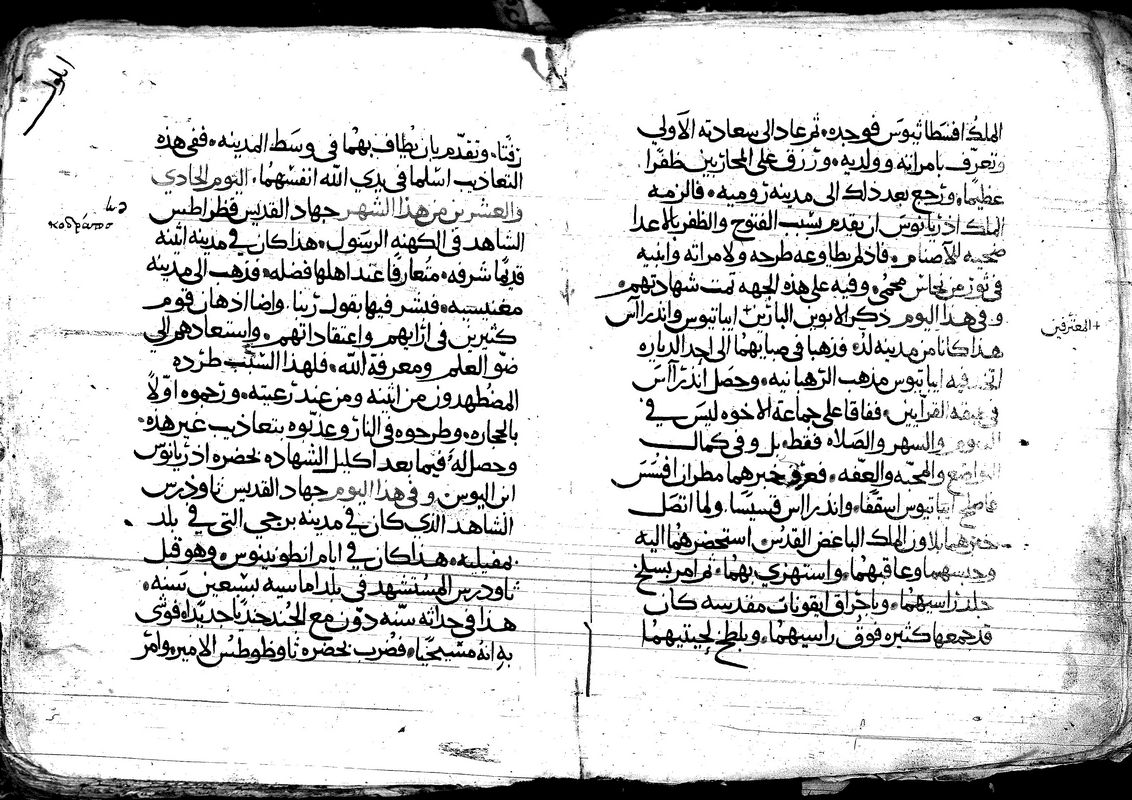 الملك افسطاثيوس فوجده. ثم عاد الى سعادته الاولي
وتعرف بامراته وولديه. ورزق على المحاربين ظفرا
عظيما. ورجع بعد ذلك الى مدينه روميه. فالزمه
الملك ادريانوس ان يقدم بسبب الفتوح والظفر بالاعدا
ضحيه للاصنام. فاذ لم يطاوعه طرحه ولامراته وابنيه
في ثور من نحاس محمي. وفيه على هذه الجهه تمت شهادتهم.
وفي هذا اليوم ذكر الابوين البارين ايباتيوس واندراآس
+ المعترفين
هذا كانا من مدينه لذ. فذهبا في صبايهما الى احد الدياره
ايباتيوس مذهب الرهبانيه. وحصل اندراآس
في القرايين. ففاقا على جماعة الاخوه ليس في
الصوم والسهر والصلاه فقط. بل وفي كمال
التواضع والمحبه والعفه. فعرف خبرهما مطران افسس
ايباتيوس اسقفا. واندرااس قسيسا. ولما اتصل
خبرهما بلاون الملك الباغض القدس. استحضرهما اليه
وحبسهما وعاقبهما. واستهزي بهما. ثم امر بسلخ
جلد راسيهما. وباحراق ايقونات مقدسه كان
قد جمعها كثيره فوق راسيهما. وبلطخ لحيتيهما
زفتا. وتقدم بان يطاف بهما في وسط المدينه. ففي هذه
التعاذيب اسلما في يدي الله انفسهما. اليوم الحادي
والعشرين من هذا الشهر جهاد القديس قظراطس
الشاهد في الكهنه الرسول. هذا كان في مدينه اثينه
قديما شرفه. متعارفا عند اهلها فضله. فذهب الى مدينه
مغنيسيه. فبشر فيها بقول ربنا. واضا اذهان قوم
كثيرين في ارايهم واعتقاداتهم. واستعادهم الى
ضو العلم ومعرفة الله. فلهذا السبب طرده
المضطهدون من اثينه ومن عند رعيته. ورجموه اولا
بالحجاره. وطرحوه في النار وعذبوه بتعاذيب غير هذه.
وحصل له فيما بعد اكليل الشهاده بحضره ادريانوس
ابن اليوس. وفي هذا اليوم جهاد القديس ثاوذرس
الشاهد الذي كان في مدينه برجي التي في بلد
بمفيليه. هذا كان في ايام انطونينوس. وهو قبل
ثاودرس المستشهد في بلد اماسيه بتسعين سنه.
هذا في حداثه سنه دون مع الجند جنديا جديدا. فوشى
به انه مسيحيا. فضرب بحضره ثاوظوطس الامير. وامر